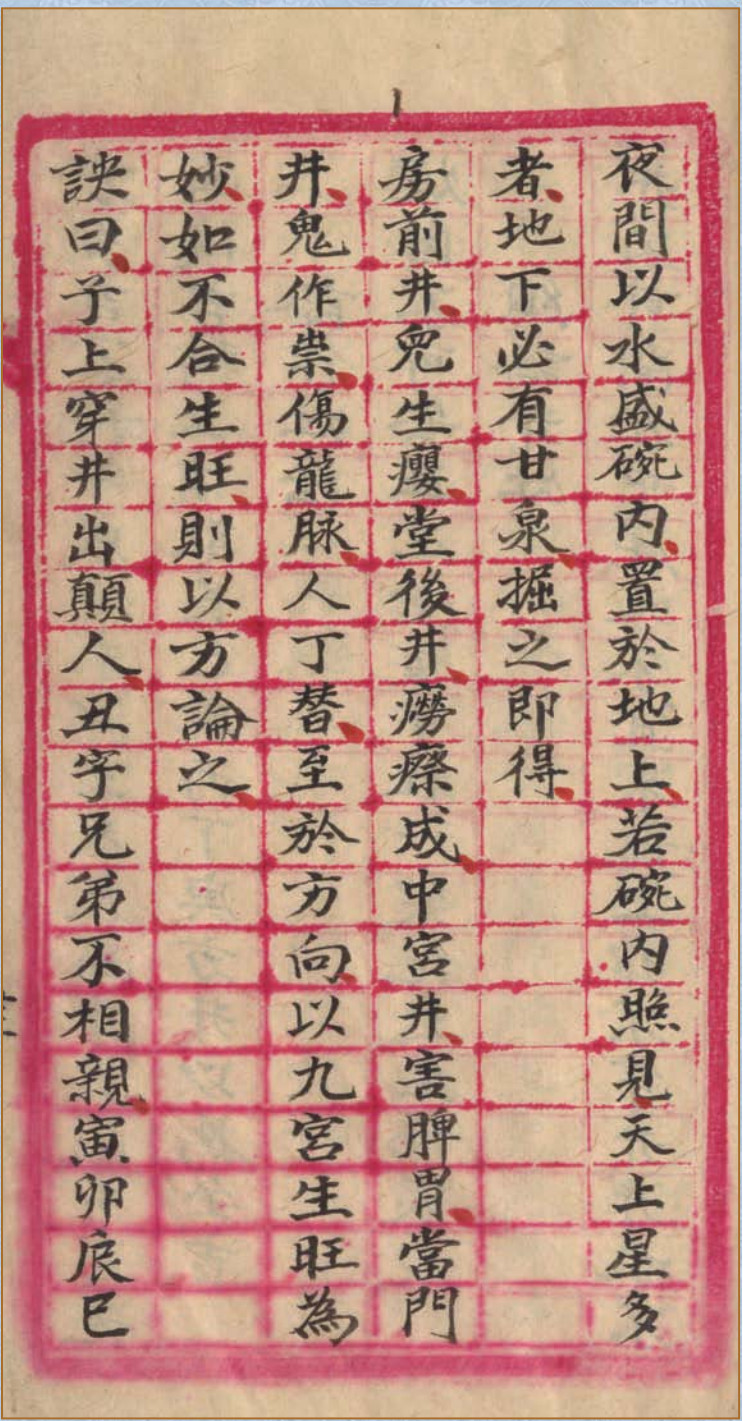 夜間以水盛碗内置於地上若碗内照見天上星多
者地下必有甘泉掘之即得
房前井兒生癭堂後井癆瘵成中宮井害脾胃當門
井鬼作祟傷龍脉人丁替至於方向以九宮生旺為
妙如不合生旺則以方論之
訣曰子上穿井出顛人丑字兄弟不相親寅卯辰巳